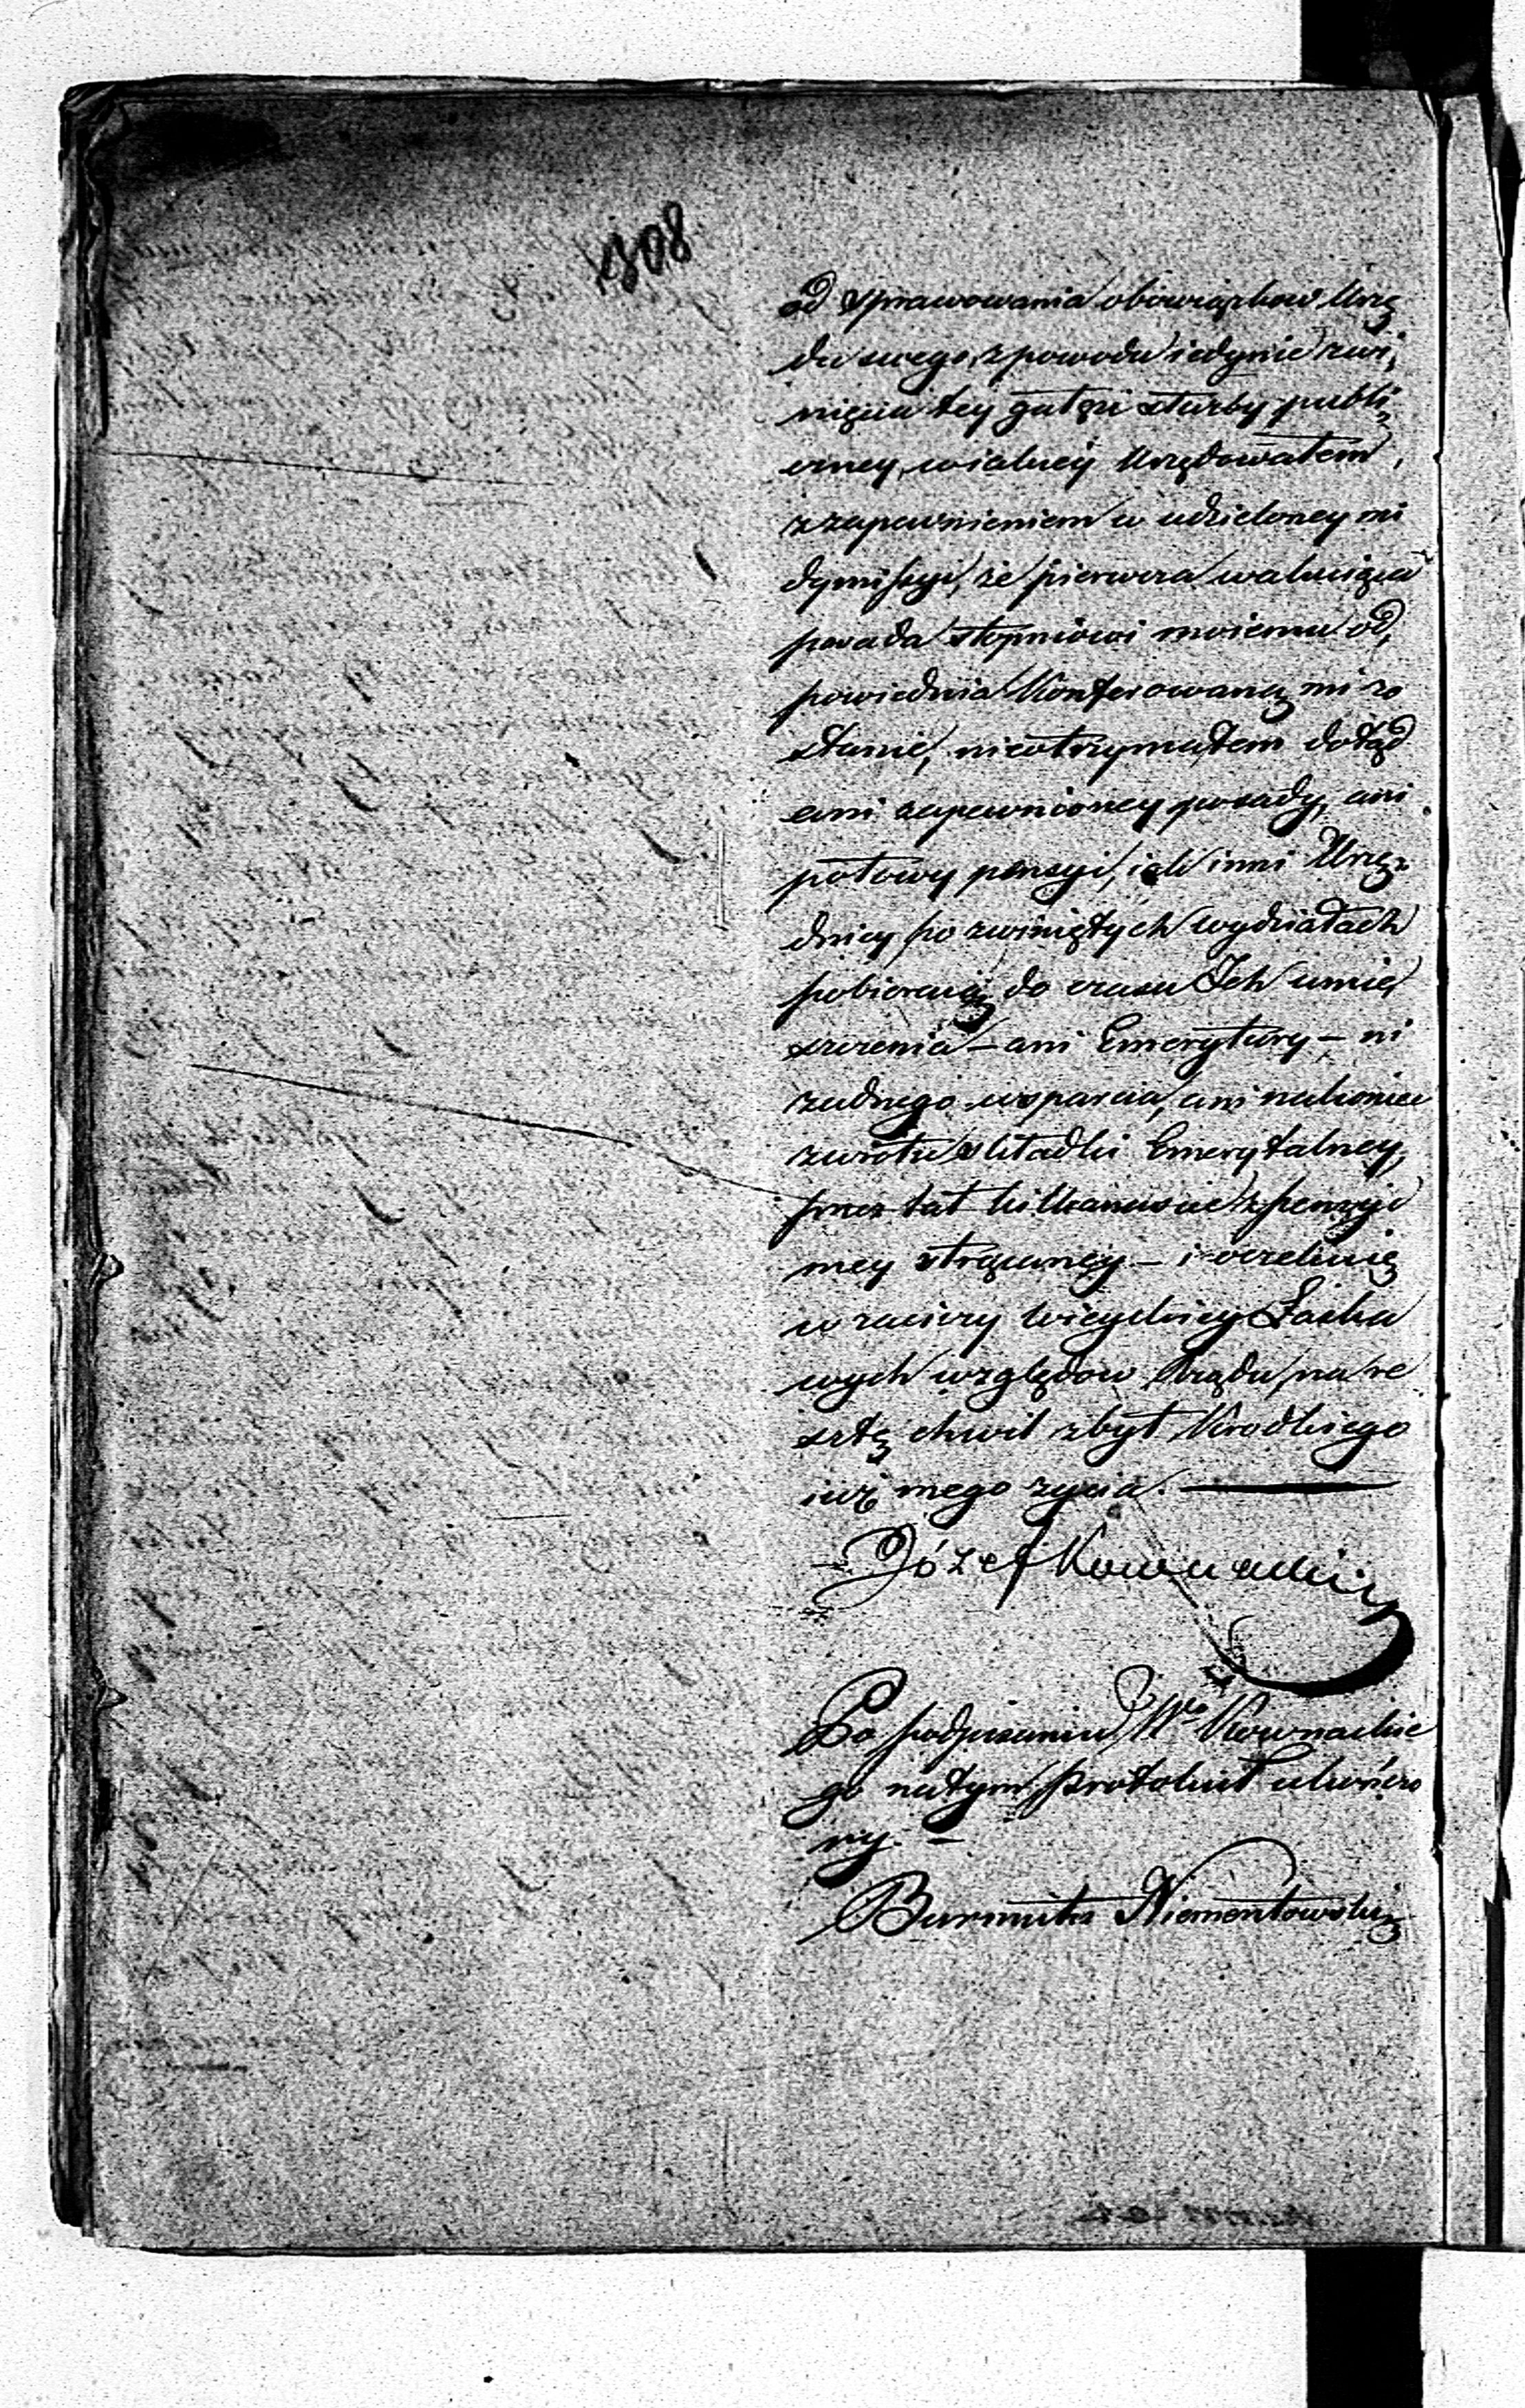 308
od sprawowania obowiązkow Urzę
du swego, z powodu iedynie zwi,
nięcia tey gałęzi służby publi,
czney, wiakiey Urzędowałem,
z zapewnieniem w udzieloney mi
dymissyi, że pierwsza wakuiąca
posada stopniowi moiemu od,
powiednia konferowaną mi zo
stanie, nieotrzymałem dotąd
ani zapewnioney posady, ani
połowy pensyi, iak inni Urzę,
dnicy po zwiniętych wydziałach
pobieraią do czasu Ich umie
szczenia – ani Emerytury – ni
żadnego wsparcia, ani nakoniec
zwrotu składki Emerytalney,
przez lat kilkanaście z pensyi
mey strącaney – i oczekuię
w zaciszy wieyskiey Łaska
wych względow Rządu, na re
sztę chwil zbyt krodkiego
iuż mego życia. —
Józef Kownacki
Po podpisaniu Wgo Kownackie
go natym protokuł ukończo
ny. –
Burmistrz Niementowski